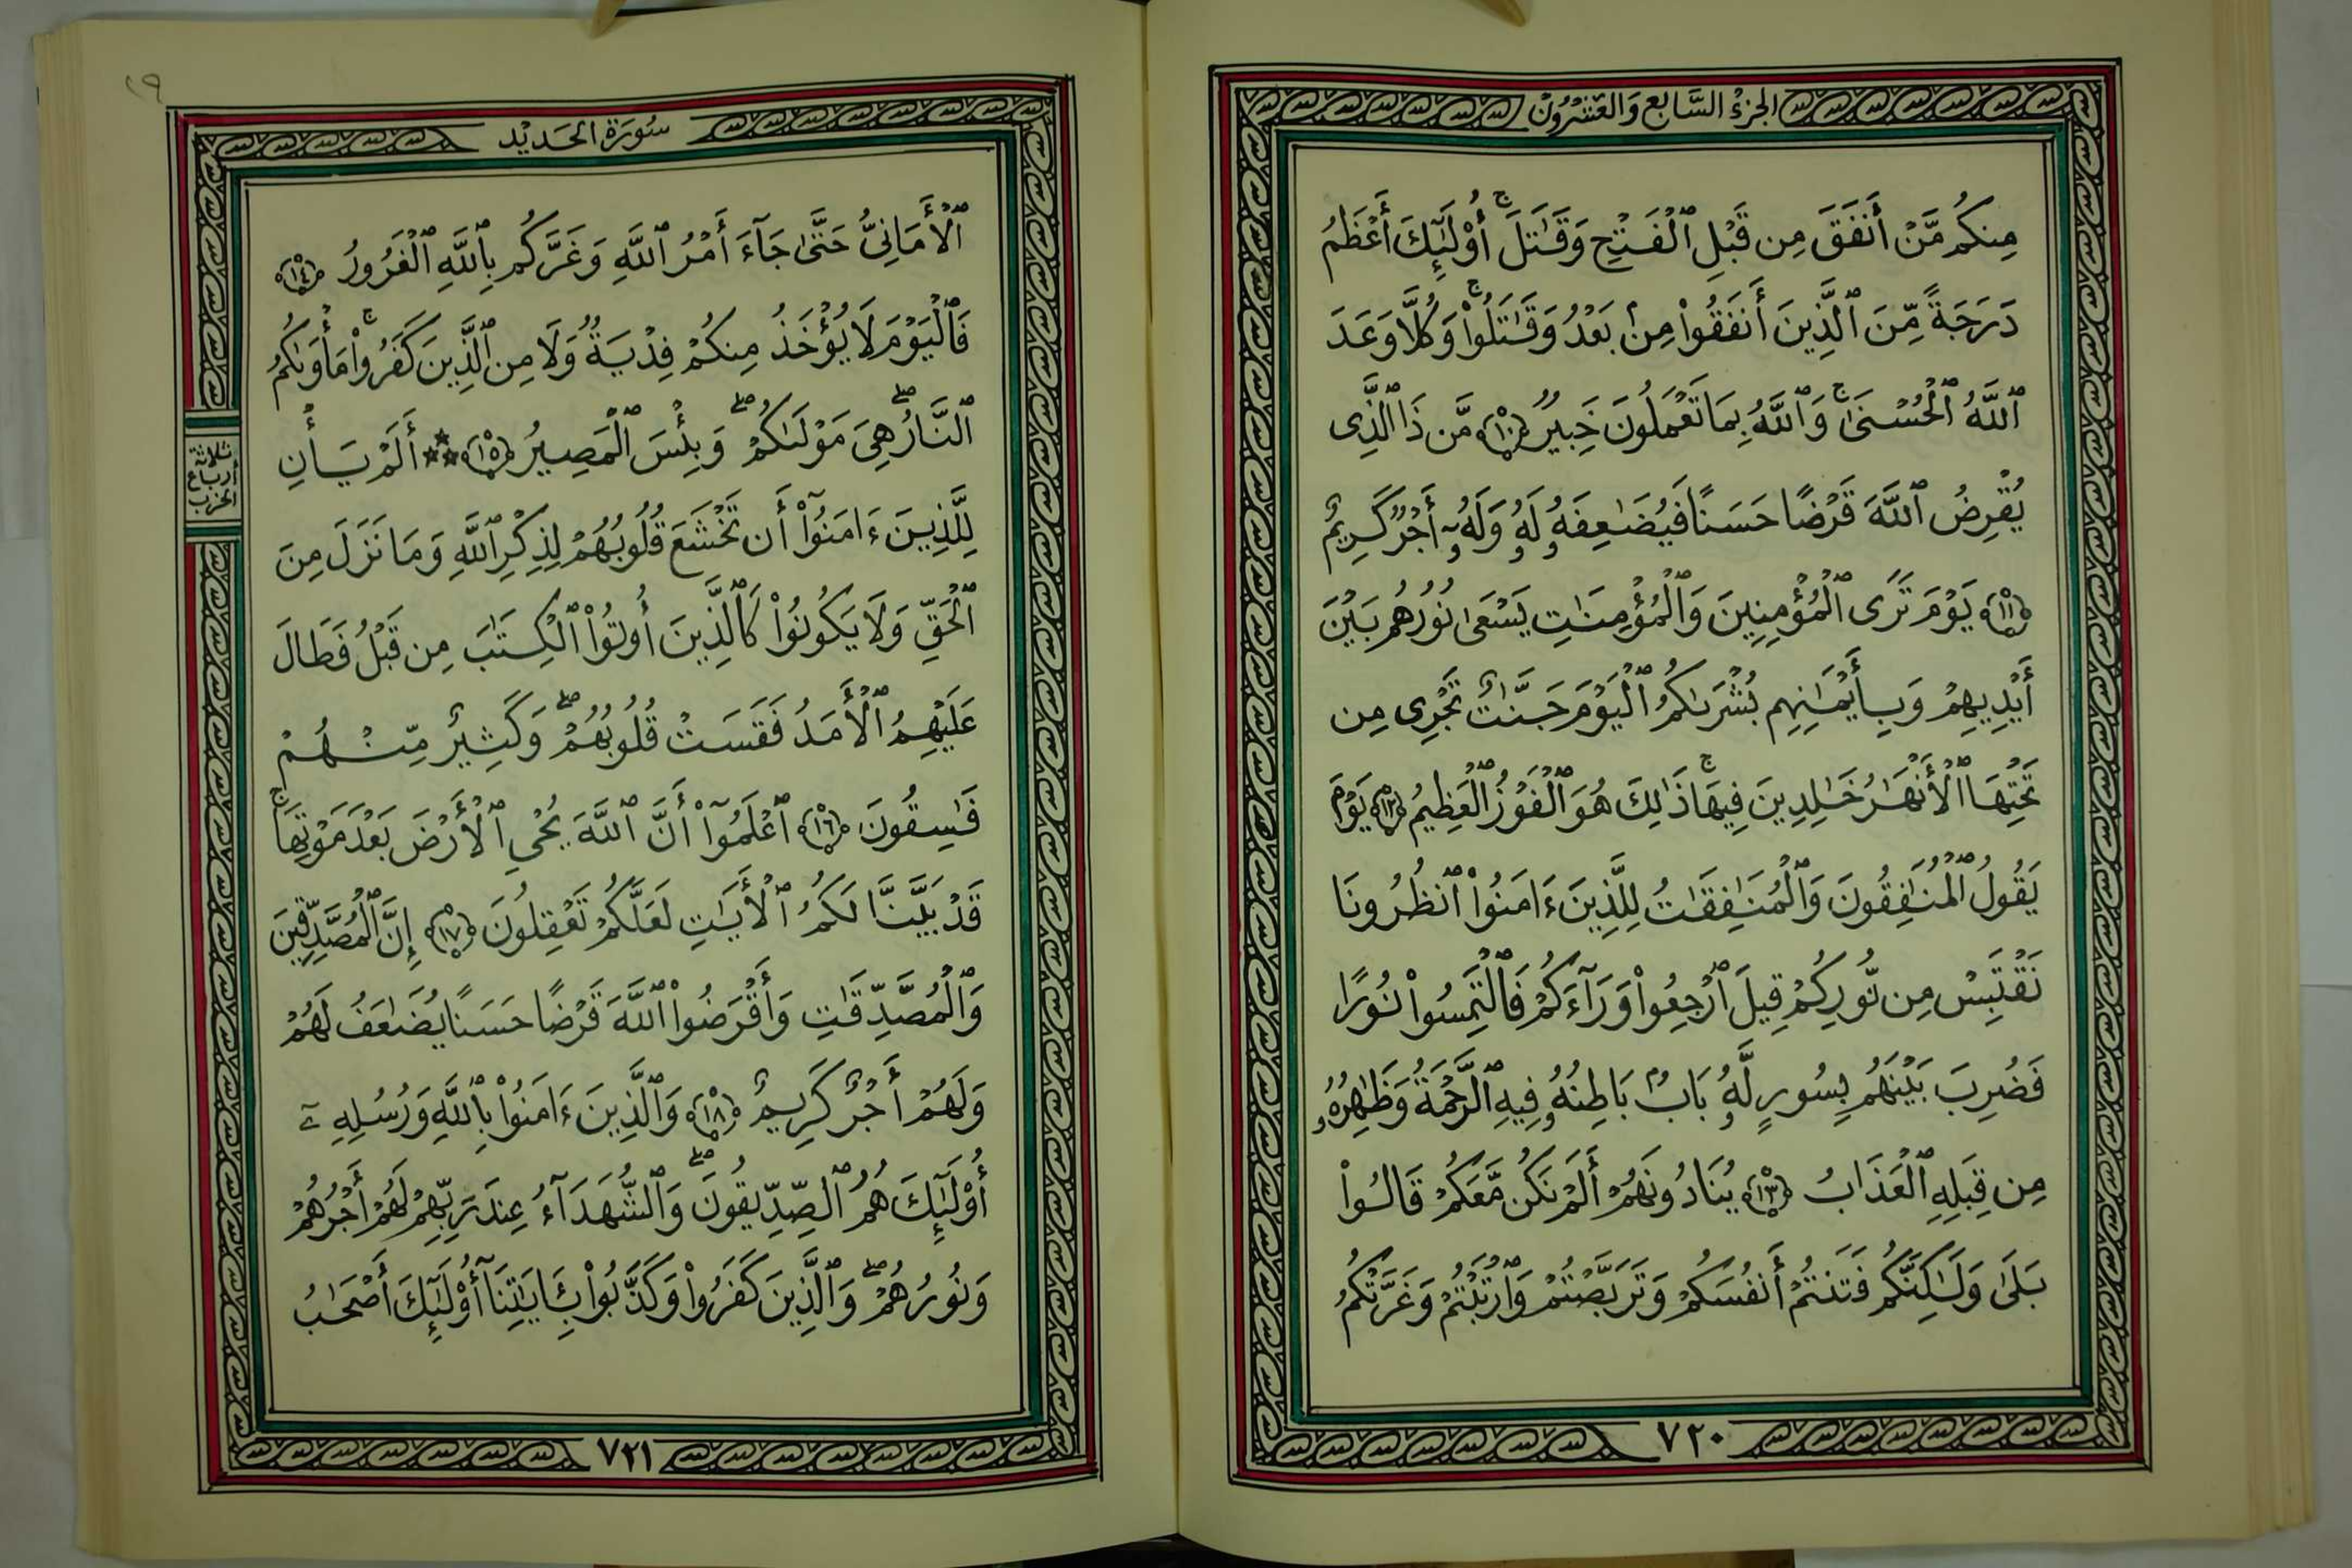 الجزء السَّابع وَالعشرُون
مِنكُم مَّنْ أَنفَقَ مِن قَبْلِ ٱلْفَتْحِ وَقَٰتَلَ ۚ أُوْلَٰٓئِكَ أَعْظَمُ
دَرَجَةً مِّنَ ٱلَّذِينَ أَنفَقُوا۟ مِنۢ بَعْدُ وَقَٰتَلُوا۟ ۚ وَكُلًّا وَعَدَ
ٱللَّهُ ٱلْحُسْنَىٰ ۚ وَٱللَّهُ بِمَا تَعْمَلُونَ خَبِيرٌ ﴿١٠﴾ مَّن ذَا ٱلَّذِى
يُقْرِضُ ٱللَّهَ قَرْضًا حَسَنًا فَيُضَٰعِفَهُۥ لَهُۥ وَلَهُۥٓ أَجْرٌ كَرِيمٌ
﴿١١﴾ يَوْمَ تَرَى ٱلْمُؤْمِنِينَ وَٱلْمُؤْمِنَٰتِ يَسْعَىٰ نُورُهُم بَيْنَ
أَيْدِيهِمْ وَبِأَيْمَٰنِهِم بُشْرَىٰكُمُ ٱلْيَوْمَ جَنَّٰتٌ تَجْرِى مِن
تَحْتِهَا ٱلْأَنْهَٰرُ خَٰلِدِينَ فِيهَا ۚ ذَٰلِكَ هُوَ ٱلْفَوْزُ ٱلْعَظِيمُ ﴿١٢﴾ يَوْمَ
يَقُولُ ٱلْمُنَٰفِقُونَ وَٱلْمُنَٰفِقَٰتُ لِلَّذِينَ ءَامَنُوا۟ ٱنظُرُونَا
نَقْتَبِسْ مِن نُّورِكُمْ قِيلَ ٱرْجِعُوا۟ وَرَآءَكُمْ فَٱلْتَمِسُوا۟ نُورًا
فَضُرِبَ بَيْنَهُم بِسُورٍ لَّهُۥ بَابٌۢ بَاطِنُهُۥ فِيهِ ٱلرَّحْمَةُ وَظَٰهِرُهُۥ
مِن قِبَلِهِ ٱلْعَذَابُ ﴿١٣﴾ يُنَادُونَهُمْ أَلَمْ نَكُن مَّعَكُمْ قَالُوا۟
بَلَىٰ وَلَٰكِنَّكُمْ فَتَنتُمْ أَنفُسَكُمْ وَتَرَبَّصْتُمْ وَٱرْتَبْتُمْ وَغَرَّتْكُمُ
٧٢٠
١٩
سُورَة الحَديْد
ٱلْأَمَانِىُّ حَتَّىٰ جَآءَ أَمْرُ ٱللَّهِ وَغَرَّكُم بِٱللَّهِ ٱلْغَرُورُ ﴿١٤﴾
فَٱلْيَوْمَ لَا يُؤْخَذُ مِنكُمْ فِدْيَةٌ وَلَا مِنَ ٱلَّذِينَ كَفَرُوا۟ ۚ مَأْوَىٰكُمُ
ٱلنَّارُ ۖ هِىَ مَوْلَىٰكُمْ ۖ وَبِئْسَ ٱلْمَصِيرُ ﴿١٥﴾ ٭٭٭ أَلَمْ يَأْنِ
لِلَّذِينَ ءَامَنُوٓا۟ أَن تَخْشَعَ قُلُوبُهُمْ لِذِكْرِ ٱللَّهِ وَمَا نَزَلَ مِنَ
ٱلْحَقِّ وَلَا يَكُونُوا۟ كَٱلَّذِينَ أُوتُوا۟ ٱلْكِتَٰبَ مِن قَبْلُ فَطَالَ
عَلَيْهِمُ ٱلْأَمَدُ فَقَسَتْ قُلُوبُهُمْ ۖ وَكَثِيرٌ مِّنْهُمْ
فَٰسِقُونَ ﴿١٦﴾ ٱعْلَمُوٓا۟ أَنَّ ٱللَّهَ يُحْىِ ٱلْأَرْضَ بَعْدَ مَوْتِهَا ۚ
قَدْ بَيَّنَّا لَكُمُ ٱلْأَيَٰتِ لَعَلَّكُمْ تَعْقِلُونَ ﴿١٧﴾ إِنَّ ٱلْمُصَّدِّقِينَ
وَٱلْمُصَّدِّقَٰتِ وَأَقْرَضُوا۟ ٱللَّهَ قَرْضًا حَسَنًا يُضَٰعَفُ لَهُمْ
وَلَهُمْ أَجْرٌ كَرِيمٌ ﴿١٨﴾ وَٱلَّذِينَ ءَامَنُوا۟ بِٱللَّهِ وَرُسُلِهِۦٓ
أُوْلَٰٓئِكَ هُمُ ٱلصِّدِّيقُونَ ۖ وَٱلشُّهَدَآءُ عِندَ رَبِّهِمْ لَهُمْ أَجْرُهُمْ
وَنُورُهُمْ ۖ وَٱلَّذِينَ كَفَرُوا۟ وَكَذَّبُوا۟ بِـَٔايَٰتِنَآ أُوْلَٰٓئِكَ أَصْحَٰبُ
ثلاثة
أرباع
الحزب
٧٢١